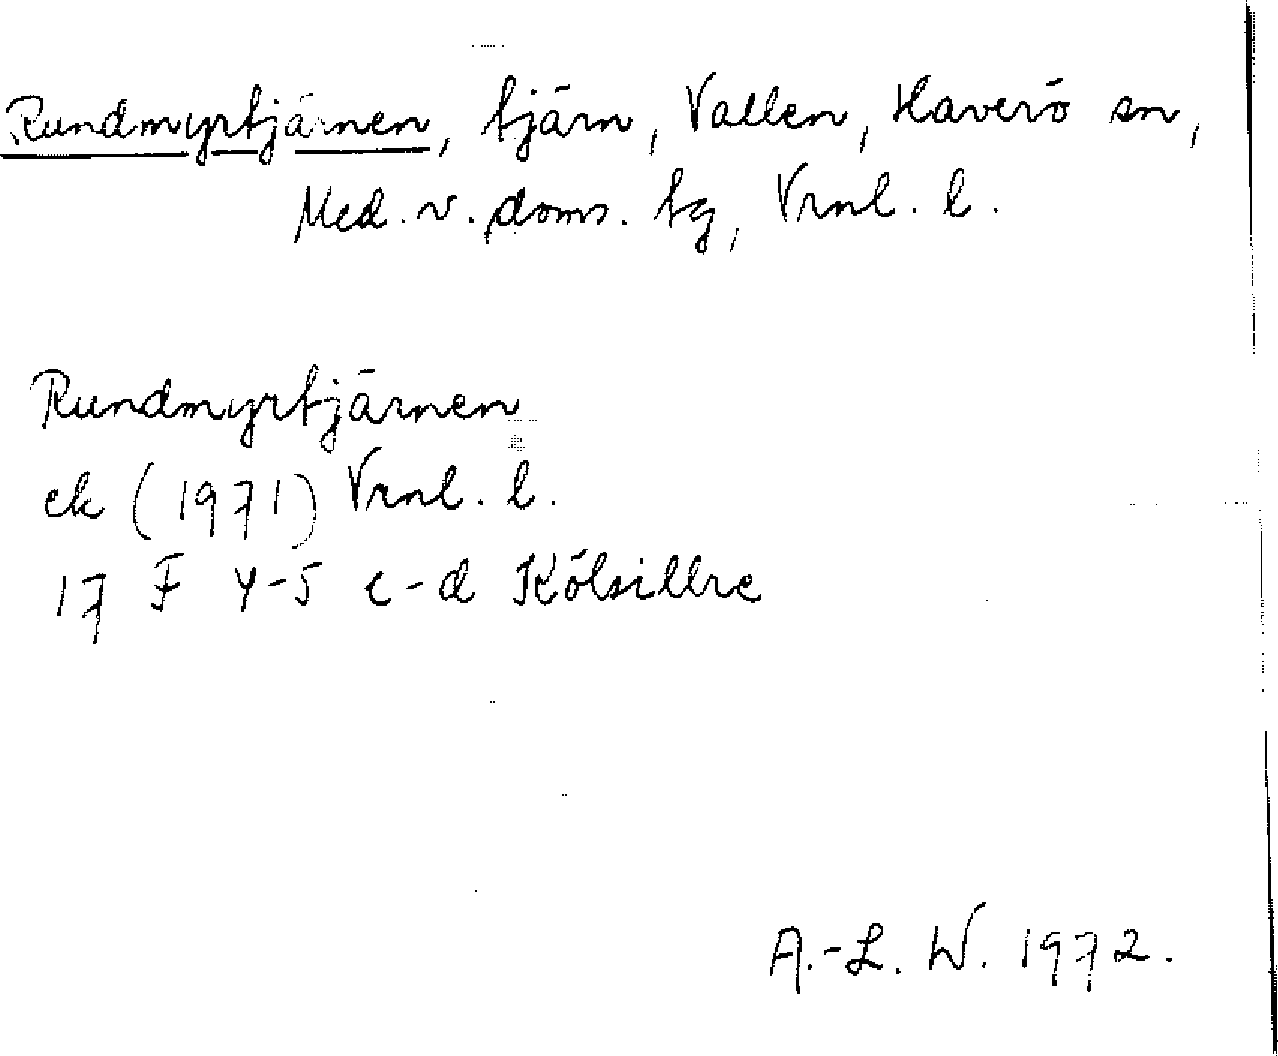 Rundmyrtjärnen, tjärn, Vallen, Haverö sn,
Med. v. doms. tg, Vrnl. l.
Rundmyrtjärnen
ek (1971) Vrnl. l.
17 F 4-5 c-d Kölsillre
A.-L. W. 1972.